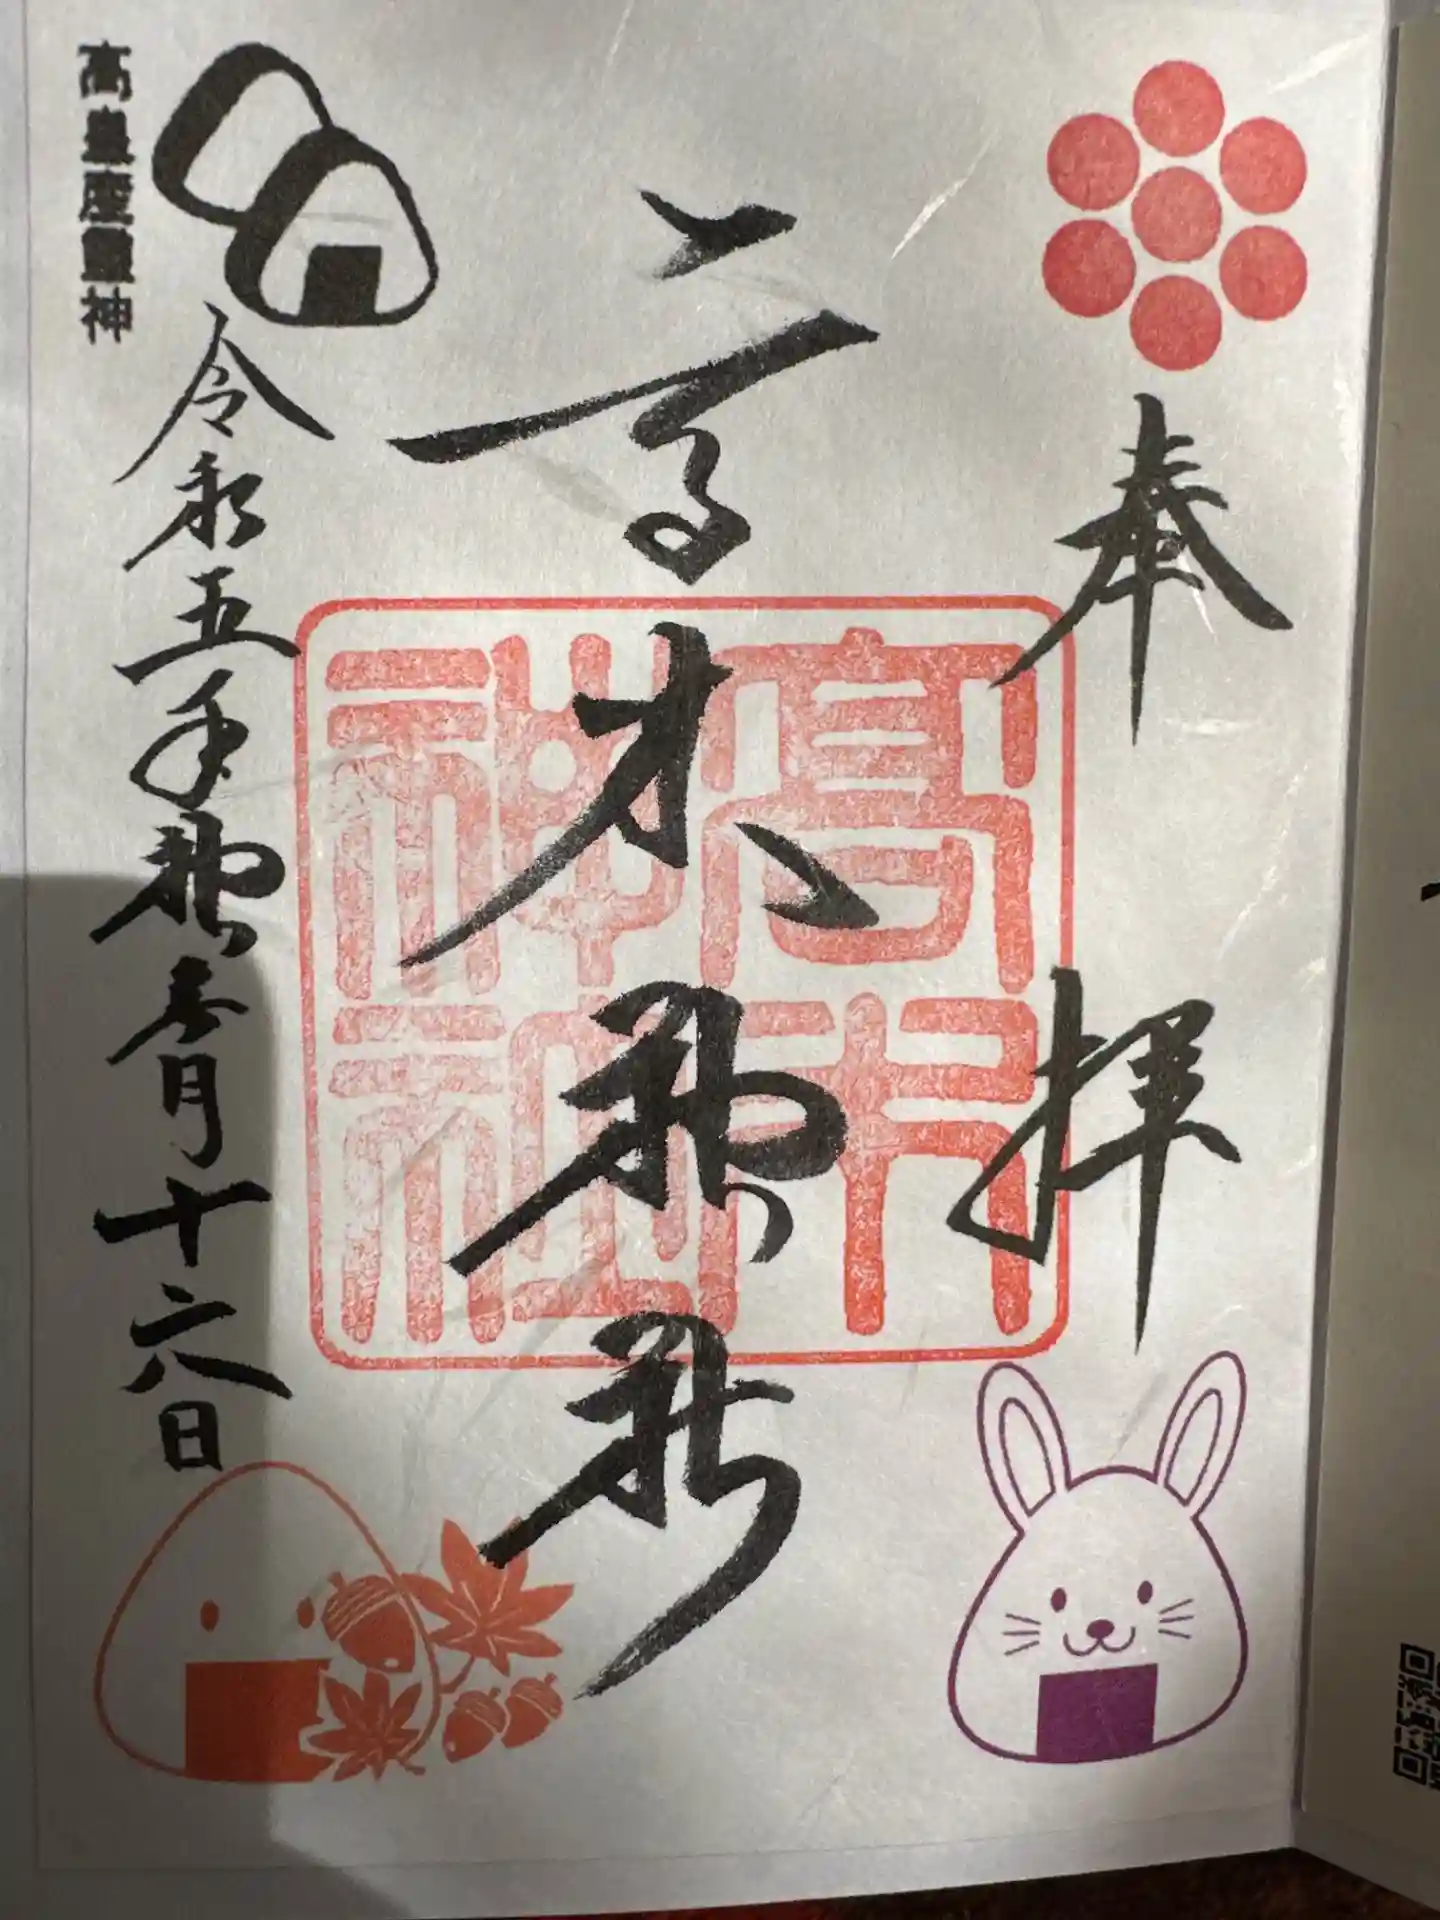 奉拝
高木神社
高木神社
令和五年神無月十六日
高皇産霊神